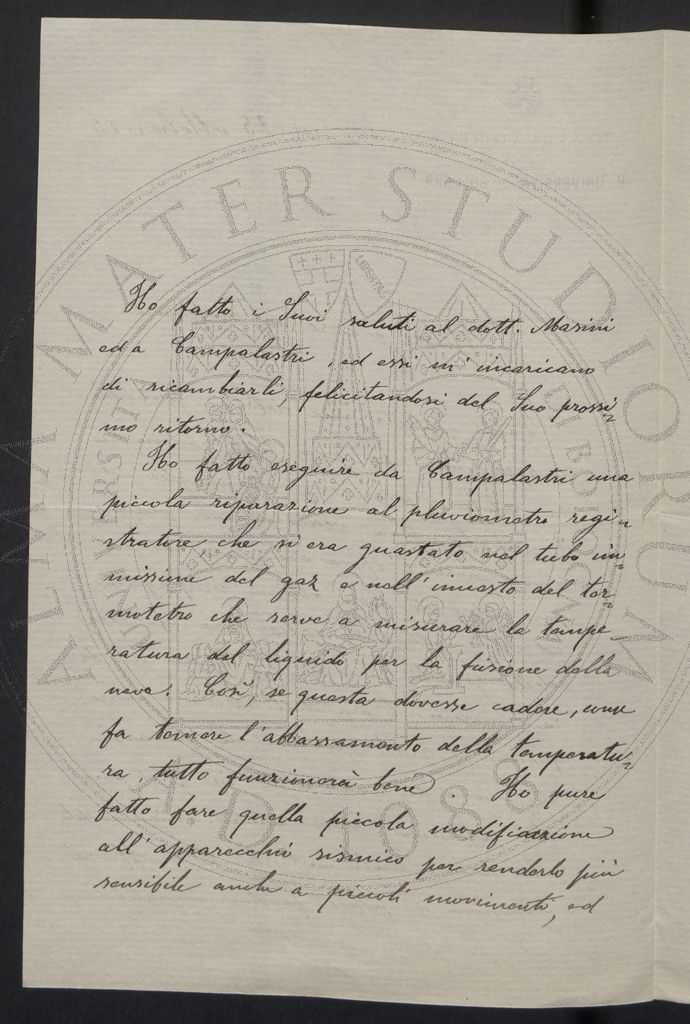 Ho fatto i Suoi saluti al dott. Masini
ed a Campalastri, ed essi m'incaricano
di ricambiarli, felicitandosi del Suo prossi=
mo ritorno.
Ho fatto eseguire da Campalastri una
piccola riparazione al pluviometro regi=
stratore, che si era guastato nel tubo im=
missione del gaz e nell'innesto del ter=
motetro che serve a misurare la tempe_
ratura del liquido per la fusione della
neve. Così, se questa dovesse cadere, come
fa temere l'abbassamento della temperatu=
ra, tutto funzionerà bene. Ho pure
fatto fare quella piccola modificazione
all'apparecchio sismico per renderlo più
sensibile anche a piccoli movimenti, ed
ALMA MATER STUDIORUM
A.D. 1088